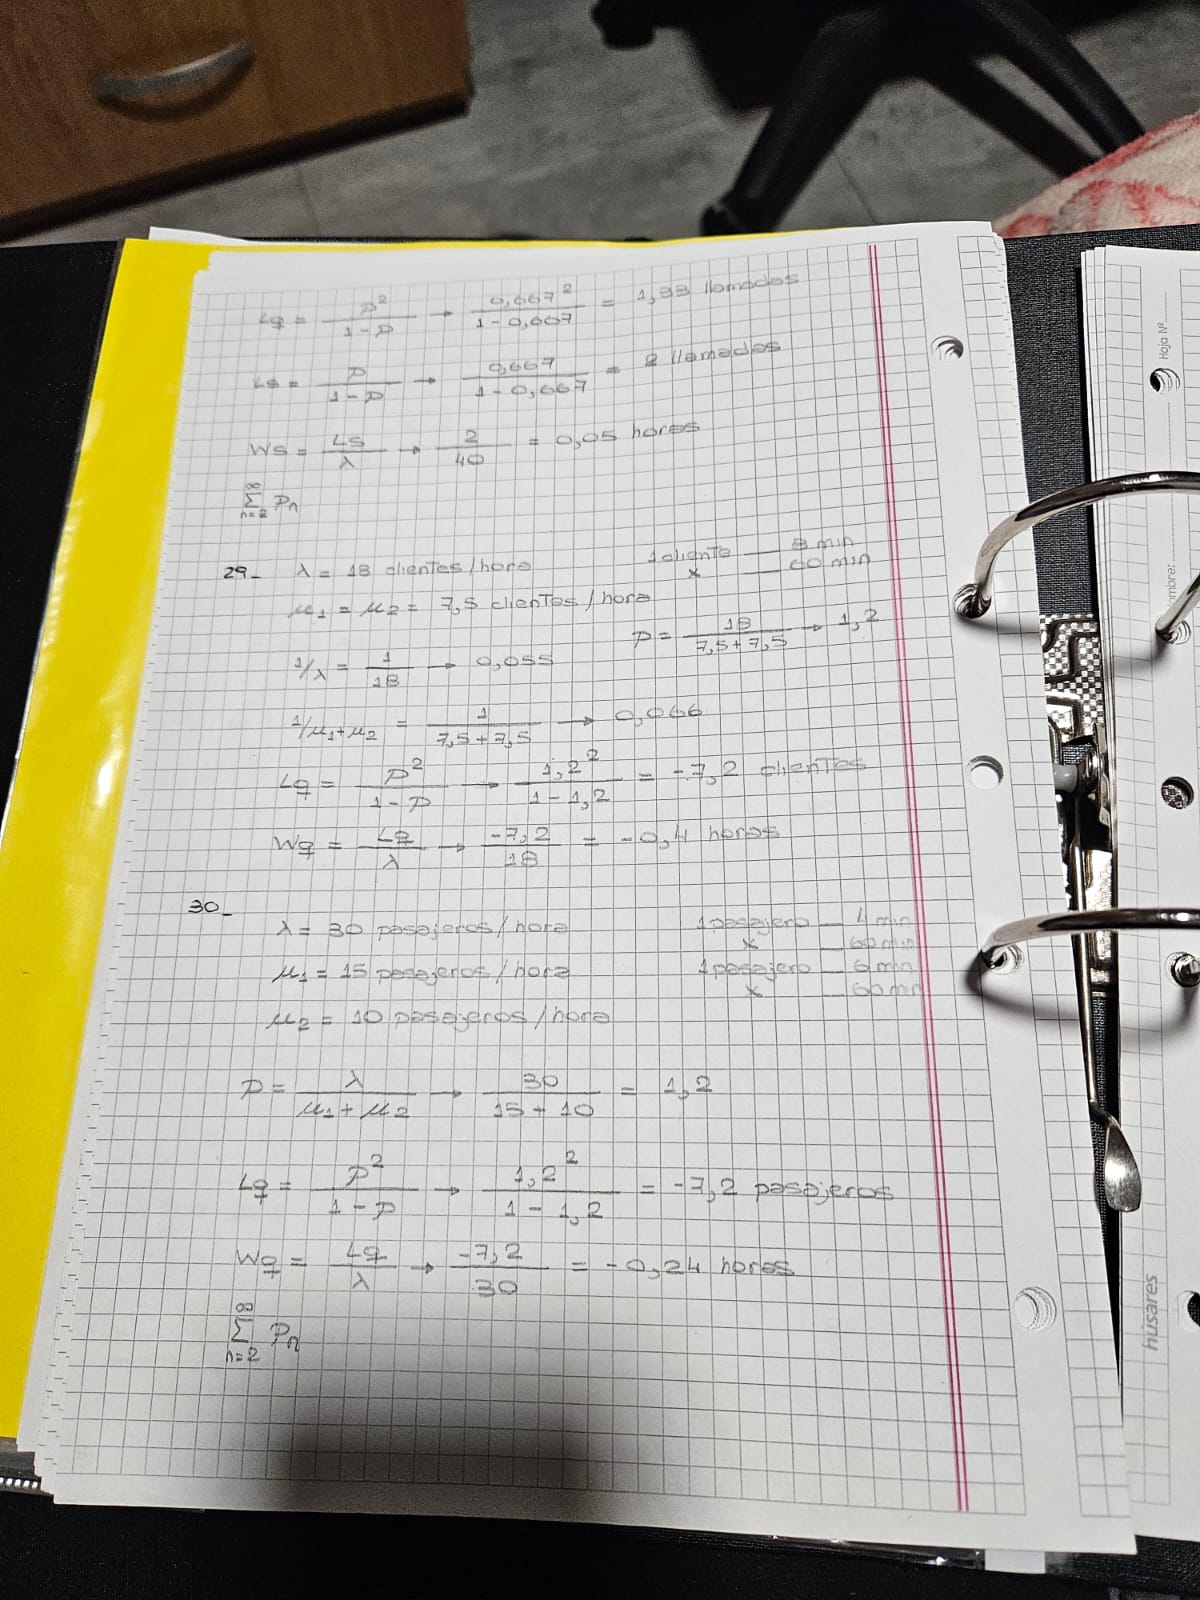 Lq = p² / 1-p → 0,667² / 1-0,667 = 1,33 llamados
Ls = p / 1-p → 0,667 / 1-0,667 = 2 llamados
Ws = Ls / λ → 2 / 40 = 0,05 horas
∞ Σ n=2 Pn
29_ λ = 18 clientes/hora 1 cliente — 8 min
x — 60 min
μ1 = μ2 = 7,5 clientes/hora
p = 18 / 7,5+7,5 → 1,2
1/λ = 1 / 18 → 0,055
1/μ1+μ2 = 1 / 7,5+7,5 → 0,066
Lq = p² / 1-p → 1,2² / 1-1,2 = -7,2 clientes
Wq = Lq / λ → -7,2 / 18 = -0,4 horas
30_
λ = 30 pasajeros/hora 1 pasajero — 4 min
x — 60 min
μ1 = 15 pasajeros/hora 1 pasajero — 6 min
x — 60 min
μ2 = 10 pasajeros/hora
p = λ / μ1+μ2 → 30 / 15+10 = 1,2
Lq = p² / 1-p → 1,2² / 1-1,2 = -7,2 pasajeros
Wq = Lq / λ → -7,2 / 30 = -0,24 horas
∞ Σ n=2 Pn
Hoja Nº
ombre:
husares